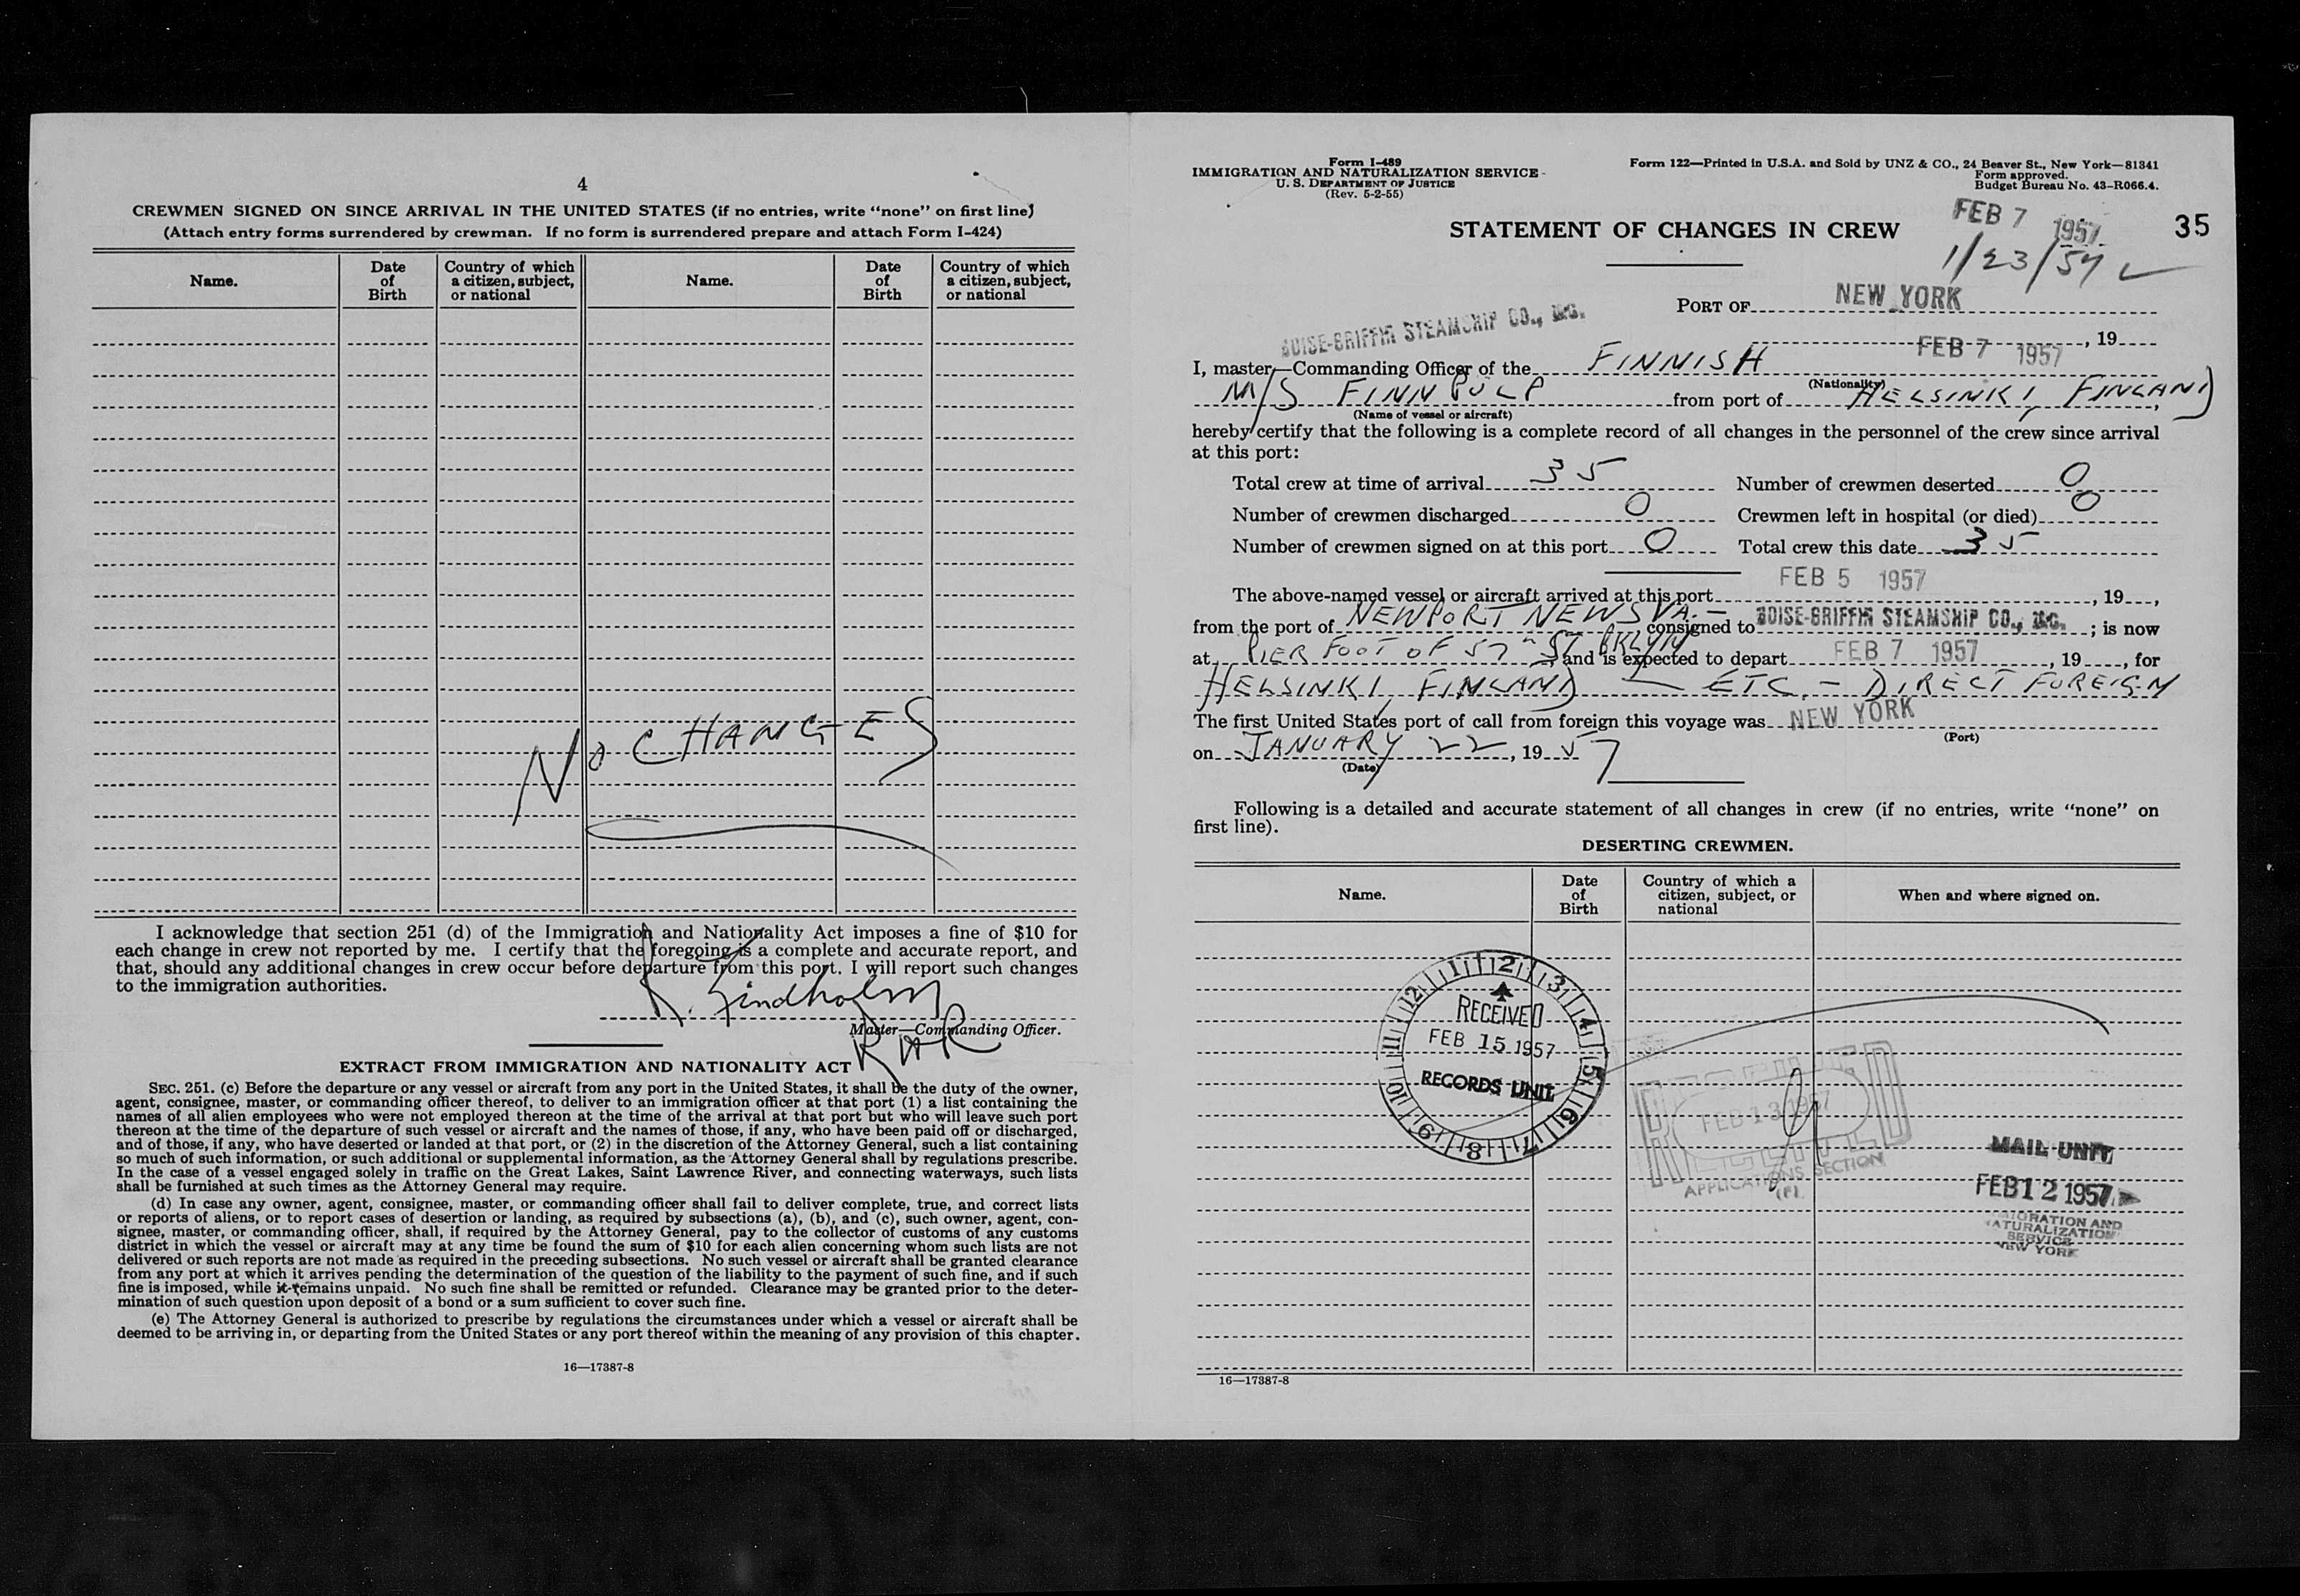 4
CREWMEN SIGNED ON SINCE ARRIVAL IN THE UNITED STATES (if no entries, write “none” on first line)
(Attach entry forms surrendered by crewman. If no form is surrendered prepare and attach Form I-424)
Name. Date of Birth Country of which a citizen, subject, or national Name. Date of Birth Country of which a citizen, subject, or national
NO CHANGES
I acknowledge that section 251 (d) of the Immigration and Nationality Act imposes a fine of $10 for
each change in crew not reported by me. I certify that the foregoing is a complete and accurate report, and
that, should any additional changes in crew occur before departure from this port, I will report such changes
to the immigration authorities.
K. Lindholm
Master—Commanding Officer.
EXTRACT FROM IMMIGRATION AND NATIONALITY ACT
SEC. 251. (c) Before the departure or any vessel or aircraft from any port in the United States, it shall be the duty of the owner,
agent, consignee, master, or commanding officer thereof, to deliver to an immigration officer at that port (1) a list containing the
names of all alien employees who were not employed thereon at the time of the arrival at that port but who will leave such port
thereon at the time of the departure of such vessel or aircraft and the names of those, if any, who have been paid off or discharged,
and of those, if any, who have deserted or landed at that port, or (2) in the discretion of the Attorney General, such a list containing
so much of such information, or such additional or supplemental information, as the Attorney General shall by regulations prescribe.
In the case of a vessel engaged solely in traffic on the Great Lakes, Saint Lawrence River, and connecting waterways, such lists
shall be furnished at such times as the Attorney General may require.
(d) In case any owner, agent, consignee, master, or commanding officer shall fail to deliver complete, true, and correct lists
or reports of aliens, or to report cases of desertion or landing, as required by subsections (a), (b), and (c), such owner, agent, con-
signee, master, or commanding officer, shall, if required by the Attorney General, pay to the collector of customs of any customs
district in which the vessel or aircraft may at any time be found the sum of $10 for each alien concerning whom such lists are not
delivered or such reports are not made as required in the preceding subsections. No such vessel or aircraft shall be granted clearance
from any port at which it arrives pending the determination of the question of the liability to the payment of such fine, and if such
fine is imposed, while it remains unpaid. No such fine shall be remitted or refunded. Clearance may be granted prior to the deter-
mination of such question upon deposit of a bond or a sum sufficient to cover such fine.
(e) The Attorney General is authorized to prescribe by regulations the circumstances under which a vessel or aircraft shall be
deemed to be arriving in, or departing from the United States or any port thereof within the meaning of any provision of this chapter.
16—17387-8
Form I-489
IMMIGRATION AND NATURALIZATION SERVICE
U. S. DEPARTMENT OF JUSTICE
(Rev. 5-2-55)
Form 122—Printed in U.S.A. and Sold by UNZ & CO., 24 Beaver St., New York—81341
Form approved.
Budget Bureau No. 43-R066.4.
STATEMENT OF CHANGES IN CREW
FEB 7 1957
35
1/23/57
PORT OF NEW YORK
BOISE-GRIFFIN STEAMSHIP CO., INC.
FEB 7 1957, 19
I, master—Commanding Officer of the FINNISH
(Nationality)
M/S FINNPULP from port of HELSINKI, FINLAND,
(Name of vessel or aircraft)
hereby certify that the following is a complete record of all changes in the personnel of the crew since arrival
at this port:
Total crew at time of arrival 35 Number of crewmen deserted 0
Number of crewmen discharged 0 Crewmen left in hospital (or died) 0
Number of crewmen signed on at this port 0 Total crew this date 35
The above-named vessel or aircraft arrived at this port FEB 5 1957, 19,
from the port of NEWPORT NEWS VA.— consigned to BOISE-GRIFFIN STEAMSHIP CO., INC.; is now
at PIER FOOT OF 57TH ST BKLYN, and is expected to depart FEB 7 1957, 19, for
HELSINKI, FINLAND — ETC. — DIRECT FOREIGN
The first United States port of call from foreign this voyage was NEW YORK
(Port)
on JANUARY 22, 1957
(Date)
Following is a detailed and accurate statement of all changes in crew (if no entries, write “none” on
first line).
DESERTING CREWMEN.
Name. Date of Birth Country of which a citizen, subject, or national When and where signed on.
1 2 3 4 5 6 7 8 9 10 11 12
RECEIVED
FEB 15 1957
RECORDS UNIT
RECEIVED
FEB 13 1957
APPLICATIONS SECTION
MAIL UNIT
FEB 12 1957
IMMIGRATION AND
NATURALIZATION
SERVICE
NEW YORK
16—17387-8